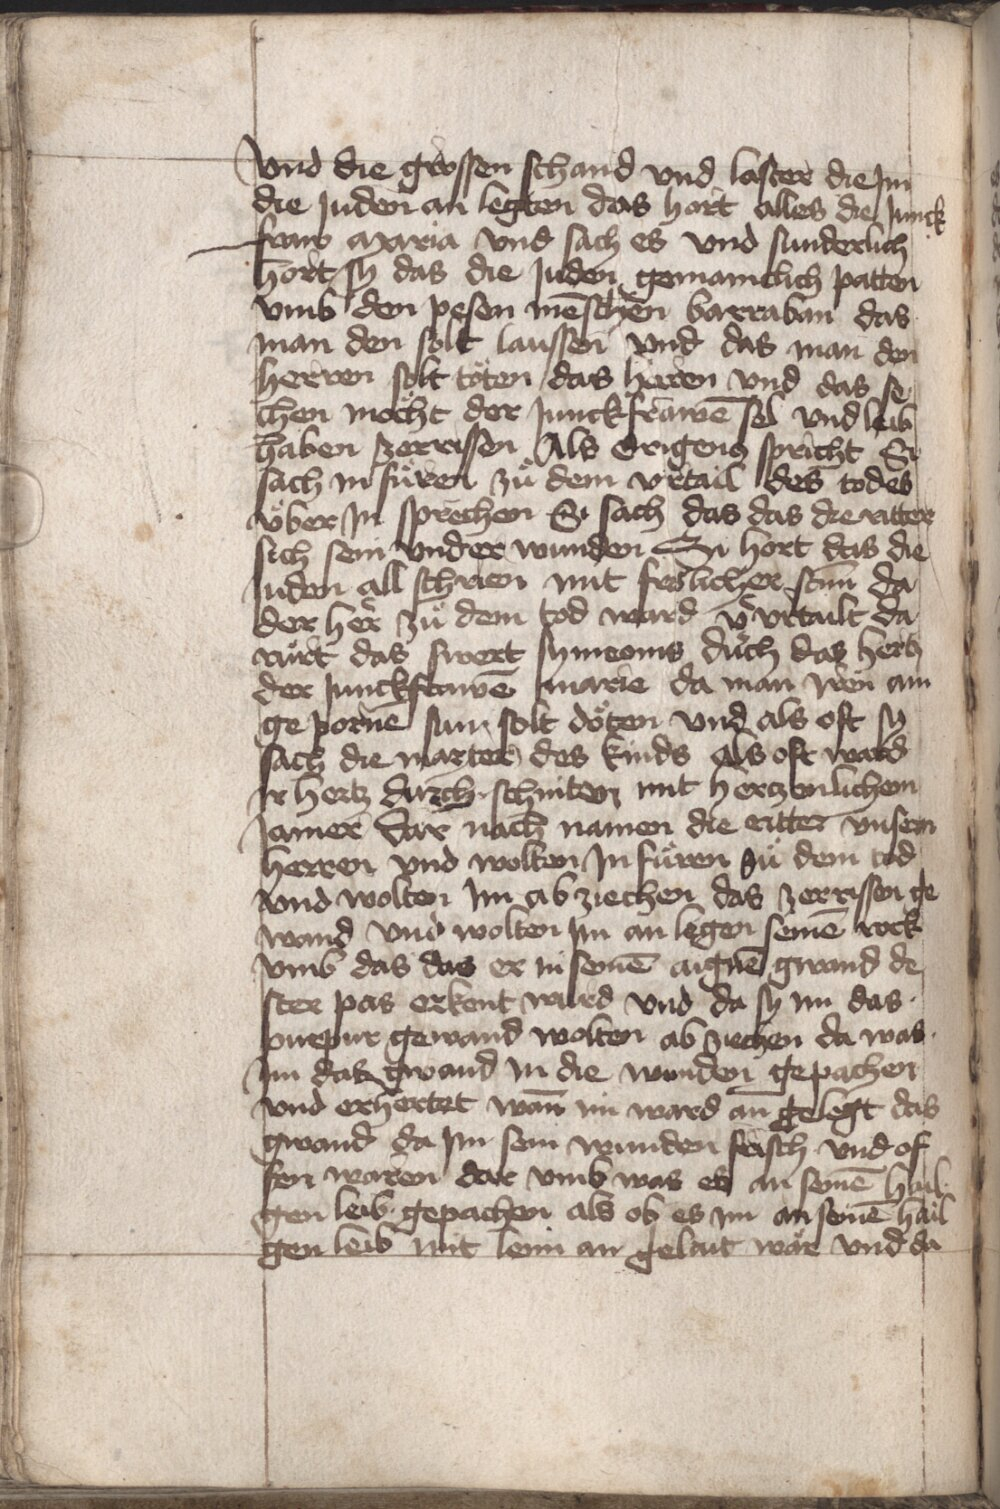 Vnd die grossen schand vnd laster die Jm
die Juden an legten das hort alles die Junck
fraw maria vnd sach es vnd sunderlich
hort sy das die Juden gemainclich patten
vmb den pesen mēschen barraban das
man den solt laussen vnd das man den
herren solt töten das herren vnd das se
chen mocht der Junckfrawē sel vnd leib
haben zerrissen Als origenes spricht Si
sach in füren zů dem vrtail des todes
vͤber Jn sprechen Si sach das das die ritter
sich sein vnder wunden Sy hort das die
Juden all schrien mit frölicher stim̄ da
der her zů dem tod ward v̄ vrtailt da
růrt das swert symeonis durch das hertz
der Junckfrawē marie da man iren ain
ge pornē sun solt döten vnd als oft sy
sach die marter des kinds Als oft ward
ir hertz durch schniten mit hertzenlichem
Jamer Dar nach namen die ritter vnsern
herren vnd wolten Jn füren zů dem tod
vnd wolten Jm ab ziechen das zerrissen ge
wand vnd wolten Jm an legen seinē rock
vmb das das er in seinē aignē gwand de
ster pas erkent wurd vnd da sy im das
purpur gewand wolten ab ziechen da was
Jm das gwand in die wunden gepachen
vnd erhertet wan̄ im ward an gelegt das
gwand da Jm sein wunden frisch vnd of
fen waren dar vmb was es an seinē hail
gen leib gepachen als ob es im an seinē hail
gen leib mit leim an gelaint wär vnd da